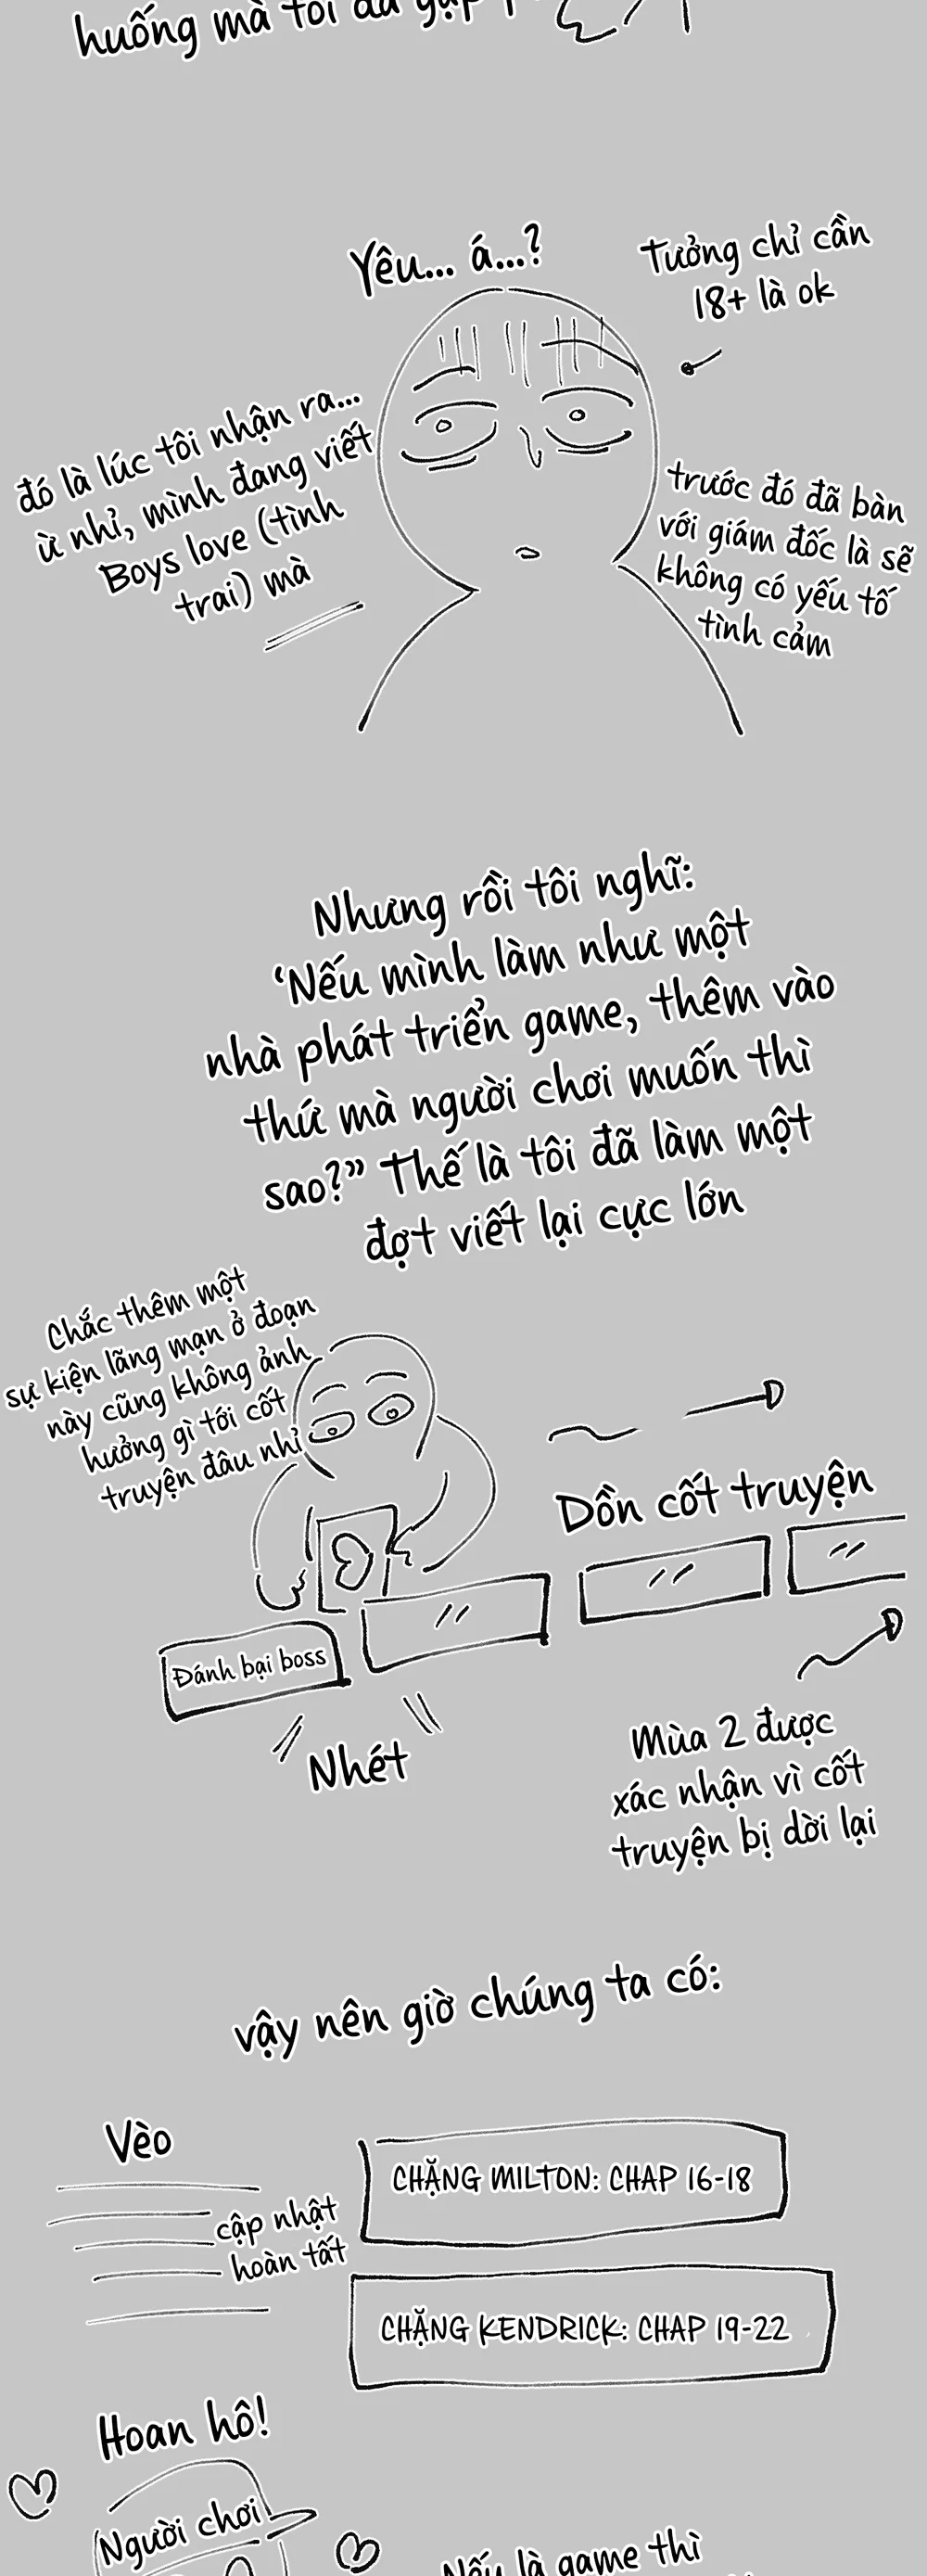 huống mà tôi đã gặp
Yêu... á...?
Tưởng chỉ cần
18+ là ok
đó là lúc tôi nhận ra...
ừ nhỉ, mình đang viết
Boys love (tình
trai) mà
trước đó đã bàn
với giám đốc là sẽ
không có yếu tố
tình cảm
Nhưng rồi tôi nghĩ:
‘Nếu mình làm như một
nhà phát triển game, thêm vào
thứ mà người chơi muốn thì
sao?” Thế là tôi đã làm một
đợt viết lại cực lớn
Chắc thêm một
sự kiện lãng mạn ở đoạn
này cũng không ảnh
hưởng gì tới cốt
truyện đâu nhỉ
Dồn cốt truyện
Đánh bại boss
Nhét
Mùa 2 được
xác nhận vì cốt
truyện bị dời lại
vậy nên giờ chúng ta có:
Vèo
cập nhật
hoàn tất
CHẶNG MILTON: CHAP 16-18
CHẶNG KENDRICK: CHAP 19-22
Hoan hô!
Người chơi
Nếu là game thì